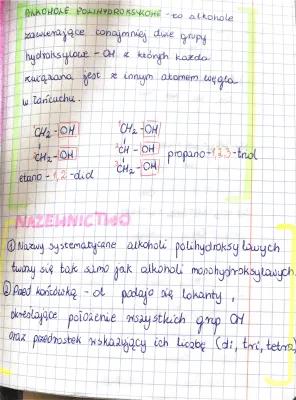 ALKOHOLE POLIHYDROKSYLOWE - to alkohole
zawierające conajmniej dwie grupy
hydroksylowe - OH z których każda
związana jest z innym atomem węgla
w łańcuchu.
CH₂-OH
CH₂-OH
etano-1,2-diol
¹CH₂-OH
²CH-OH
³CH₂-OH
propano-1,2,3-triol
NAZEWNICTWO
① Nazwy systematyczne alkoholi polihydroksylowych
tworzy się tak samo jak alkoholi monohydroksylowych.
② Przed końcówką -ol podaje się lokanty,
określające położenie wszystkich grup OH
oraz przedrostek wskazujący ich liczbę (di, tri, tetra)